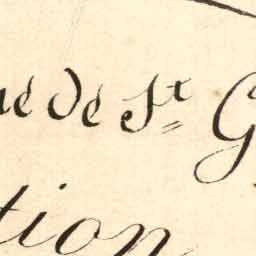 ue de St G
tion